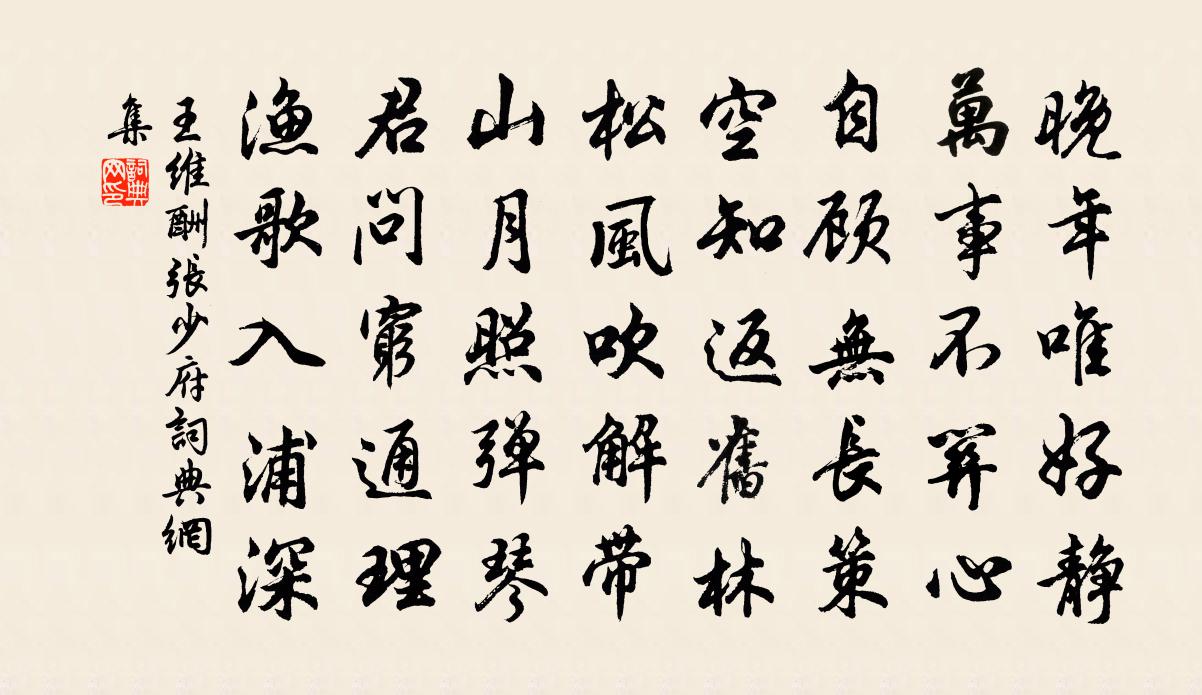 晚年唯好静
萬事不關心
自顾無長策
空知返舊林
松風吹解帶
山月照弹琴
君問窮通理
漁歌入浦深
王維酬張少府詞典網
集
詞典網印